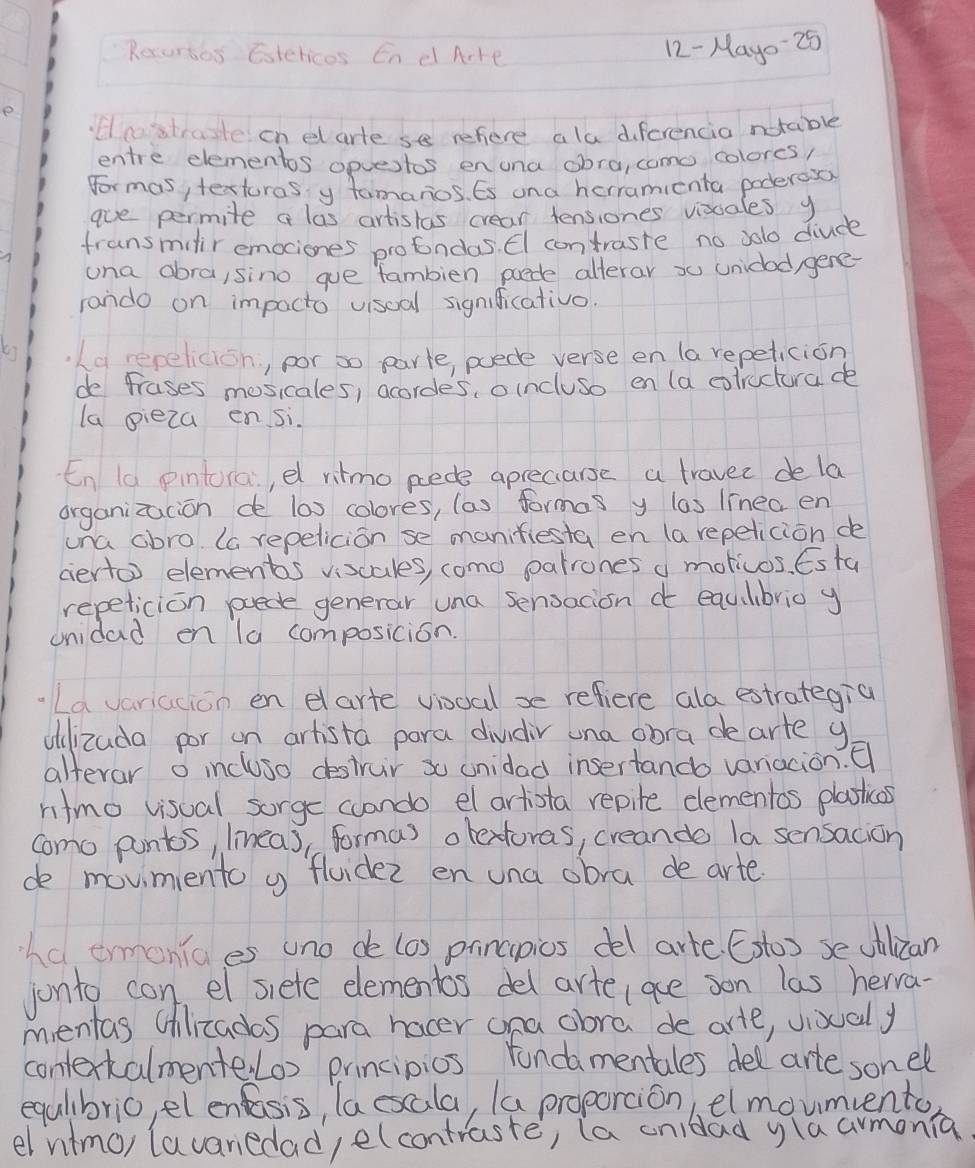 Recursos Esteticos En el Arte
12-Mayo-25
El contraste en el arte se refiere a la diferencia notable
entre elementos opuestos en una obra, como colores,
formas, texturas y tamaños. Es una herramienta poderosa
que permite a las artistas crear tensiones visuales y
transmitir emociones profundas. El contraste no solo divide
una obra, sino que tambien puede alterar su unidad, gene-
rando un impacto visual significativo.
La repetición, por su parte, puede verse en la repetición
de frases musicales, acordes, o incluso en la estructura de
la pieza en si.
En la pintura, el ritmo pede apreciarse a travez de la
organización de los colores, las formas y las linea en
una obra. La repetición se manifiesta en la repetición de
ciertos elementos visuales, como patrones y motivos. Esta
repetición puede generar una sensación de equilibrio y
unidad en la composición.
La variación en el arte visual se refiere ala estrategia
utilizada por un artista para dividir una obra de arte y
alterar o incluso destruir su unidad insertando variación. El
ritmo visual surge cuando el artista repite elementos plasticos
como puntos, lineas, formas o texturas, creando la sensación
de movimiento y fluidez en una obra de arte.
La ermonía es uno de los principios del arte. Estos se utilizan
junto con el siete elementos del arte, que son las herra-
mientas utilizadas para hacer una obra de arte, visual y
contextualmente. Los principios fundamentales del arte son el
equilibrio, el enfasis, la escala, la proporción, el movimiento,
el ritmo, la variedad, el contraste, la unidad y la armonía.